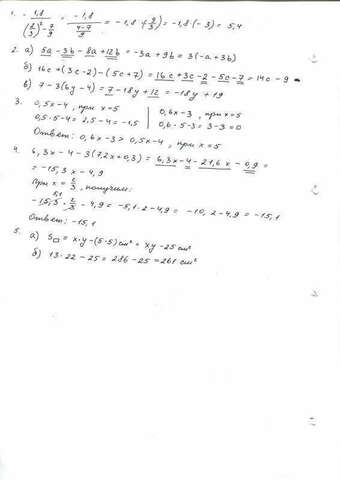 1. - 1,8 / ((2/3)² - 7/9) = - 1,8 / ((4-7)/9) = -1,8 · (9/3) = -1,8 · (-3) = 5,4
2. а) 5a - 3b - 8a + 12b = -3a + 9b = 3(-a+3b)
б) 16c + (3c-2) - (5c+7) = 16c + 3c - 2 - 5c - 7 = 14c - 9
в) 7 - 3(6y-4) = 7 - 18y + 12 = -18y + 19
3. 0,5x-4, при x=5 | 0,6x-3, при x=5
0,5·5-4 = 2,5-4 = -1,5 | 0,6·5-3 = 3-3=0
Ответ: 0,6x-3 > 0,5x-4, при x=5
4. 6,3x - 4 - 3(7,2x+0,3) = 6,3x - 4 - 21,6x - 0,9 =
= -15,3x - 4,9
При x = 2/3, получим:
-15,3 · 2/3 - 4,9 = -5,1·2-4,9 = -10,2-4,9 = -15,1
Ответ: -15,1
5. а) S□ = x·y-(5·5)см² = xy-25см²
б) 13·22-25 = 286-25=261 см²